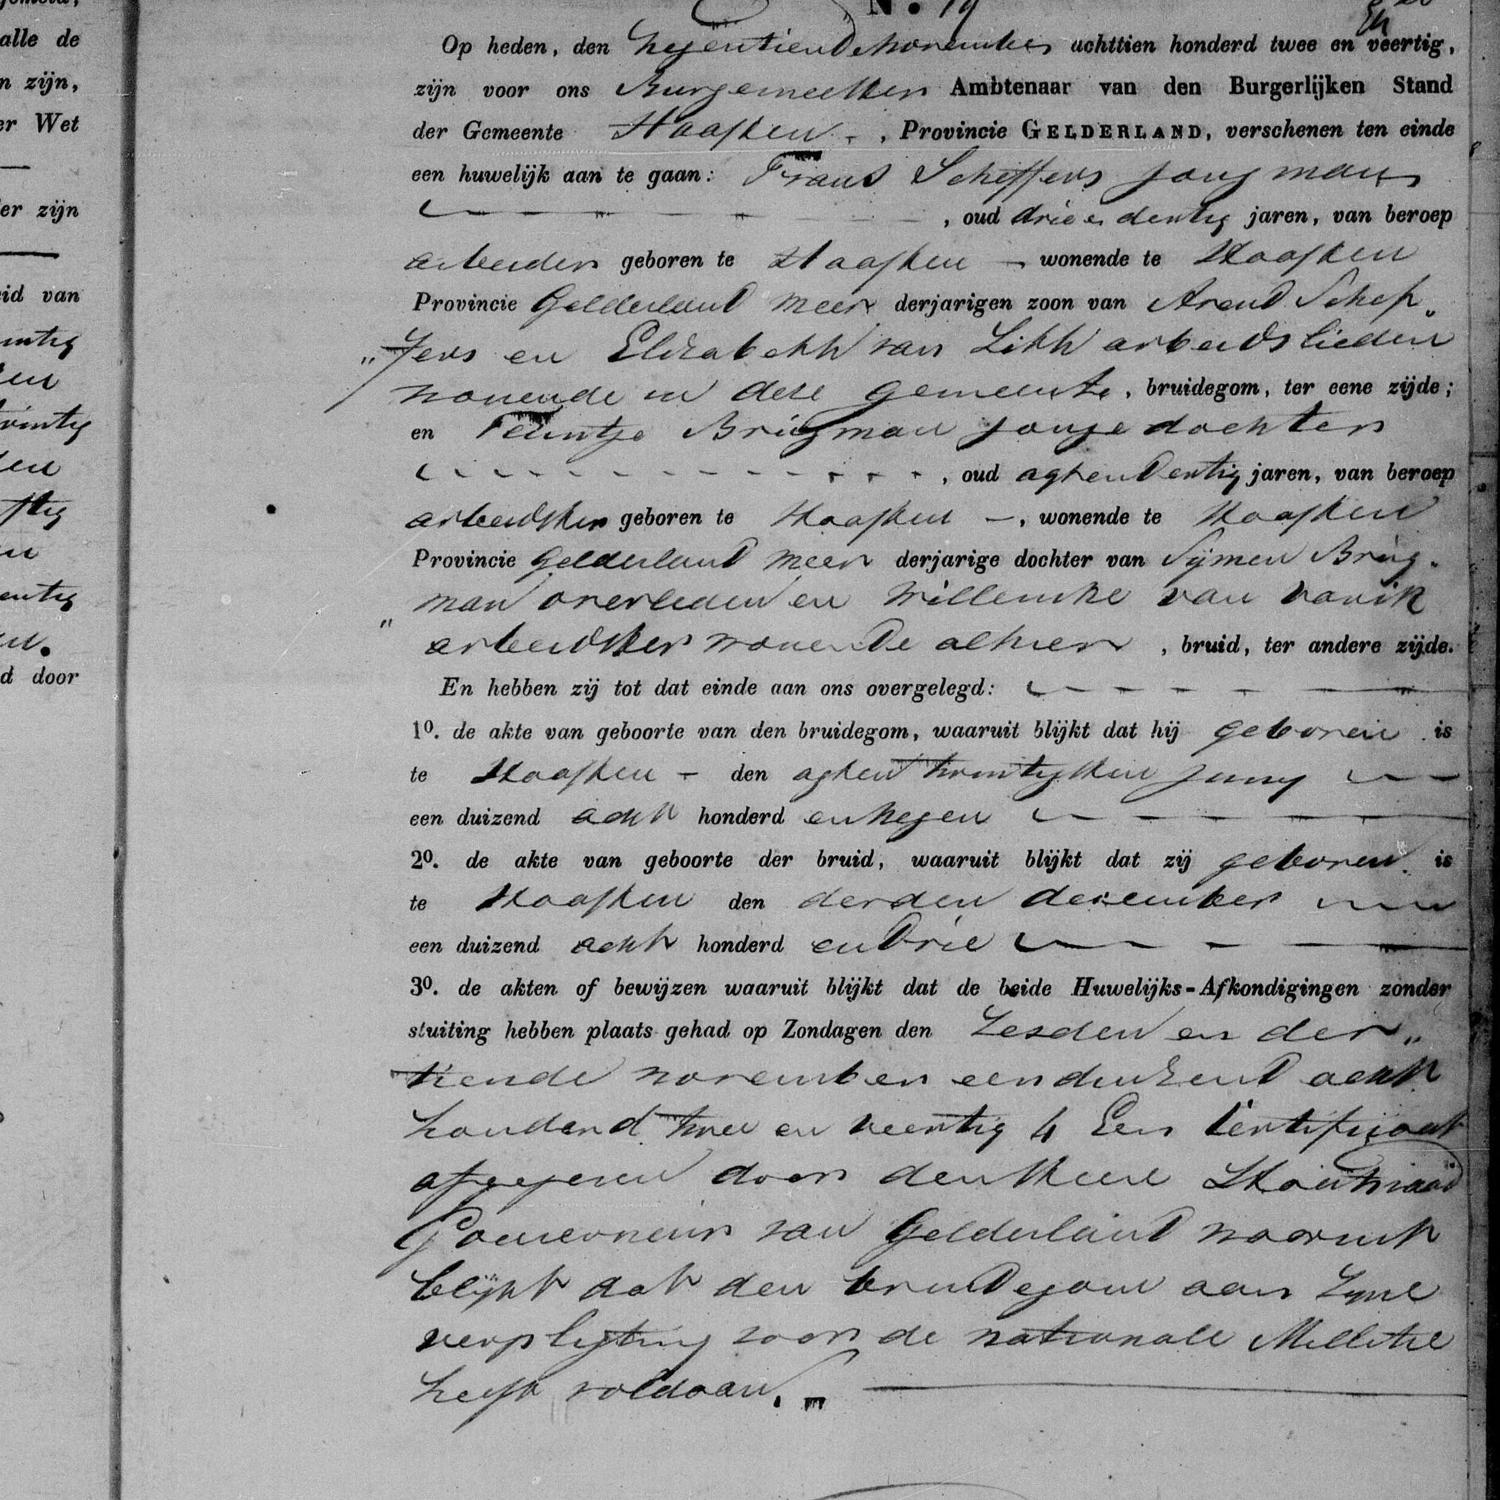 N.º 19
Op heden, den negentiende november achttien honderd twee en veertig,
zijn voor ons Burgemeester Ambtenaar van den Burgerlijken Stand
der Gemeente Haaften, Provincie GELDERLAND, verschenen ten einde
een huwelijk aan te gaan: Frans Scheffers jongman
, oud drie en dertig jaren, van beroep
arbeider geboren te Haaften — wonende te Haaften
Provincie Gelderland meer derjarigen zoon van Arend Schef„
„fers en Elizabeth van Lith arbeidslieden
wonende in deze gemeente, bruidegom, ter eene zijde;
en Teuntje Brugman jonge dochter
, oud agtendertig jaren, van beroep
arbeidster geboren te Haaften —, wonende te Haaften
Provincie Gelderland meer derjarige dochter van Sijmen Brug-
„man overleden en Willemke van Varik
arbeidster wonende alhier, bruid, ter andere zijde.
En hebben zij tot dat einde aan ons overgelegd:
1º. de akte van geboorte van den bruidegom, waaruit blijkt dat hij geboren is
te Haaften — den agten twintigsten Junij
een duizend acht honderd en negen
2º. de akte van geboorte der bruid, waaruit blijkt dat zij geboren is
te Haaften den derden december
een duizend acht honderd en drie
3º. de akten of bewijzen waaruit blijkt dat de beide Huwelijks-Afkondigingen zonder
stuiting hebben plaats gehad op Zondagen den Zesden en der„
tiende november eenduizend acht
honderd twee en veertig 4 Een Certificaat
afgegeven door den Heere Staatsraad
Gouverneur van Gelderland waaruit
blijkt dat den bruidegom aan zijne
verpligting voor de nationale Militie
heeft voldaan.
alle de
n zijn,
er Wet
er zijn
eid van
d door